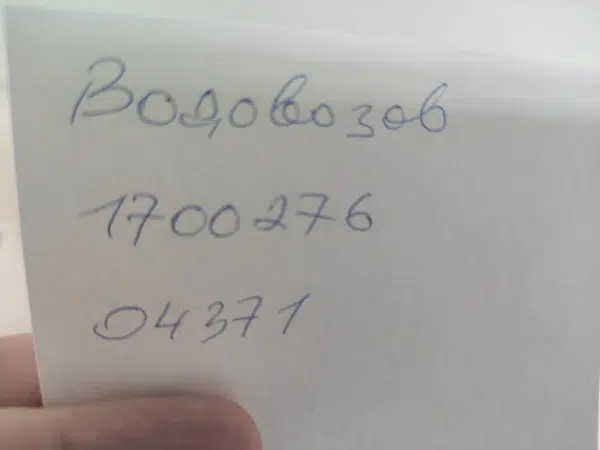 Водовозов
1700276
04371